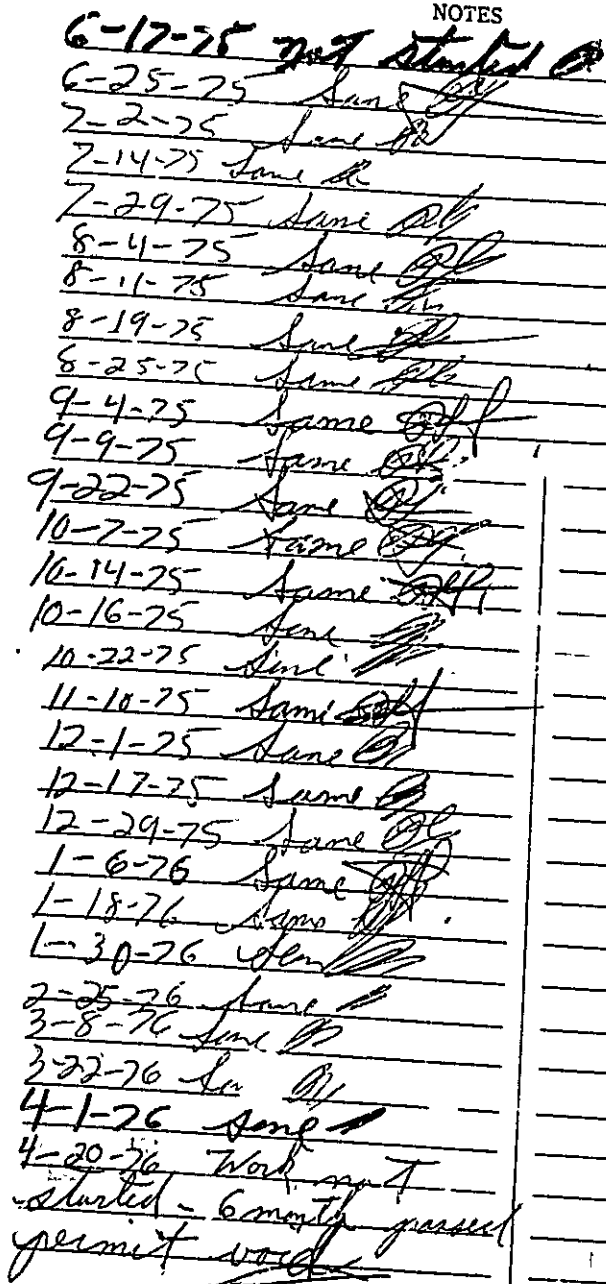 NOTES
6-17-75 not started
6-25-75 Same
7-2-75 Same
7-14-75 Same
7-29-75 Same
8-4-75 Same
8-11-75 Same
8-19-75 Same
8-25-75 Same
9-4-75 Same
9-9-75 Same
9-22-75 Same
10-7-75 Same
10-14-75 Same
10-16-75 Same
10-22-75 Same
11-10-75 Same
12-1-75 Same
12-17-75 Same
12-29-75 Same
1-6-76 Same
1-18-76 Same
1-30-76
2-25-76 Same
3-8-76 Same
3-22-76
4-1-76 Same
4-20-76 Work not
started - 6 months passed
permit void